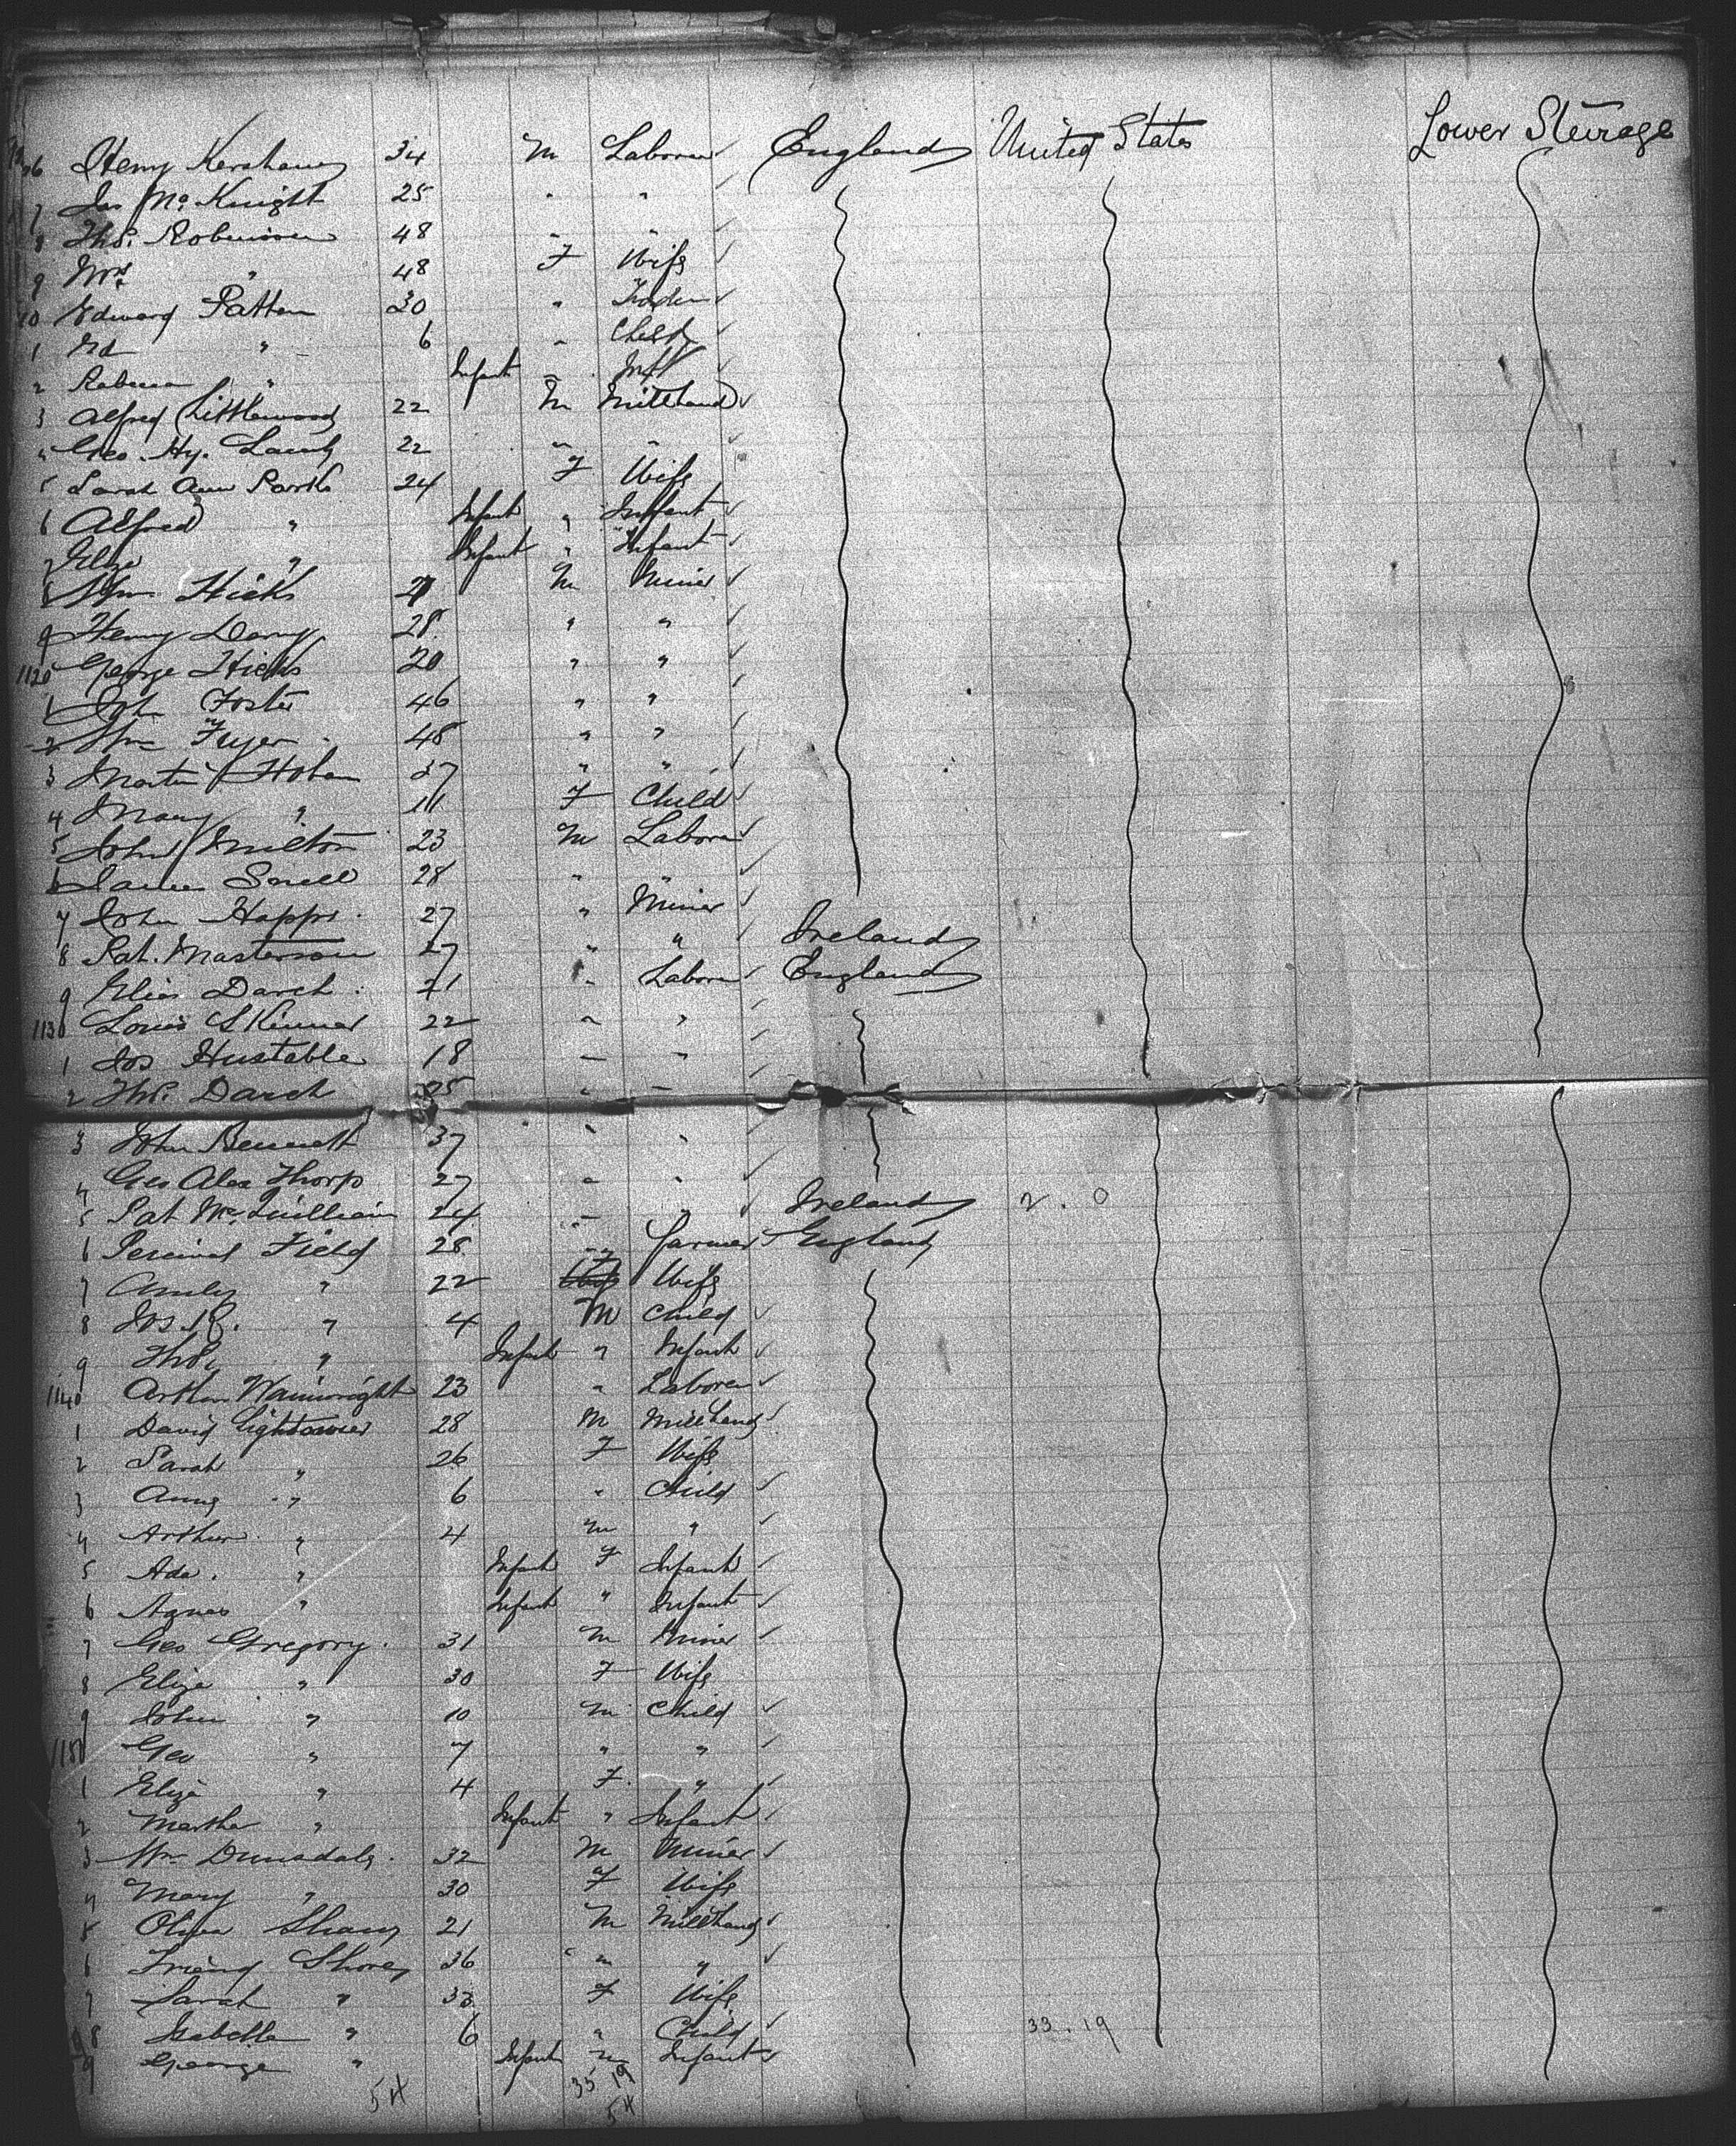 6 Henry Kershaw 34 M Laborer England United States Lower Steerage
7 Jas McKnight 25 " "
8 Thos. Robinson 48 " "
9 Mrs " 48 F Wife
10 Edward Patten 30 "
1 Ed " 6 " Child
2 " Infant " Inft
3 Alfred Littlewood 22 M Millhand
4 Geo. Hy. 22 " "
5 Sarah Ann Parks 24 F Wife
6 Alfred " Infant " Infant
7 Eliza " Infant " Infant
8 Wm Hicks M Miner
9 Henry 28 " "
1120 George Hicks 20 " "
1 John Foster 46 " "
2 Wm Fryer 48 " "
3 Martin Hoban 37 " "
4 Mary " 11 F Child
5 John Milton 23 M Laborer
6 James Snell 28 " "
7 John Happs 27 " Miner
8 Pat. Masterson 27 " " Ireland
9 Elias Darch 21 " Labor England
1130 Louis Skinner 22 " "
1 Jos Hustable 18 " "
2 Thos. Darch 25 " "
3 John Bennett 37 " "
4 Geo Alex Thorp 27 " "
5 Pat McQuillian 24 " " Ireland 2 . 0
6 Percival Field 28 " farmer England
7 " 22 F Wife
8 " 4 M Child
9 Thos " Infant " Infant
1140 Arthur Wainwright 23 " Laborer
1 David 28 M Millhand
2 Sarah " 26 F Wife
3 " 6 " Child
4 Arthur " 4 M "
5 Ada. " Infant F Infant
6 Agnes " Infant " Infant
7 Geo Gregory 31 M Miner
8 Eliza " 30 F Wife
9 John " 10 M Child
1150 Geo " 7 " "
1 Eliza " 4 F "
2 Martha " Infant " Infant
3 Wm Dunsdale 32 M Miner
4 Mary " 30 F Wife
5 Oliver Shaw 21 M Millhand
6 Friend Shore 36 " "
7 Sarah " 33 F Wife
8 Isabella " 6 " Child 33 . 19
9 George " Infant M Infant
54 35 19
54